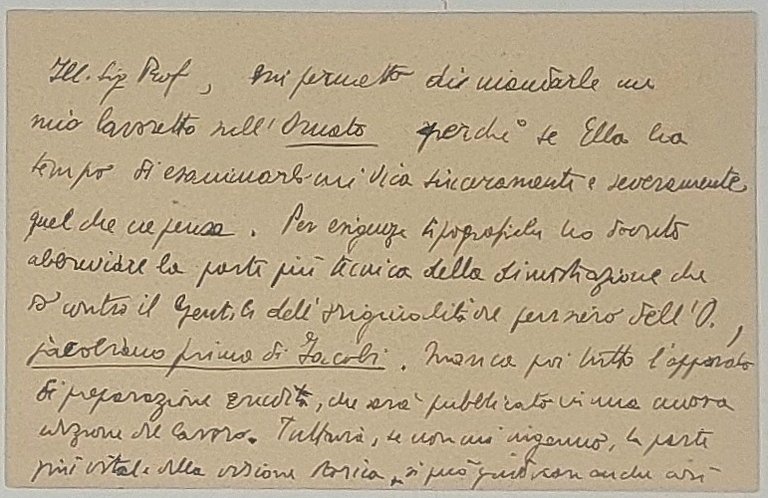 Ill. Sig. Prof, mi permetto di mandarle un
mio lavoretto sull'Ornato perché se Ella ha
tempo di esaminarlo mi dica sinceramente e severamente
quel che ne pensa. Per esigenze tipografiche ho dovuto
abbreviare la parte più tecnica della dimostrazione che
do contro il Gentile dell'originalità del pensiero dell'O.,
jacobiano prima di Jacobi. Manca poi tutto l'apparato
di preparazione erudita, che sarà pubblicato in una nuova
edizione del lavoro. Tuttavia, se non mi inganno, la parte
più vitale della visione storica, si può giudicare anche così